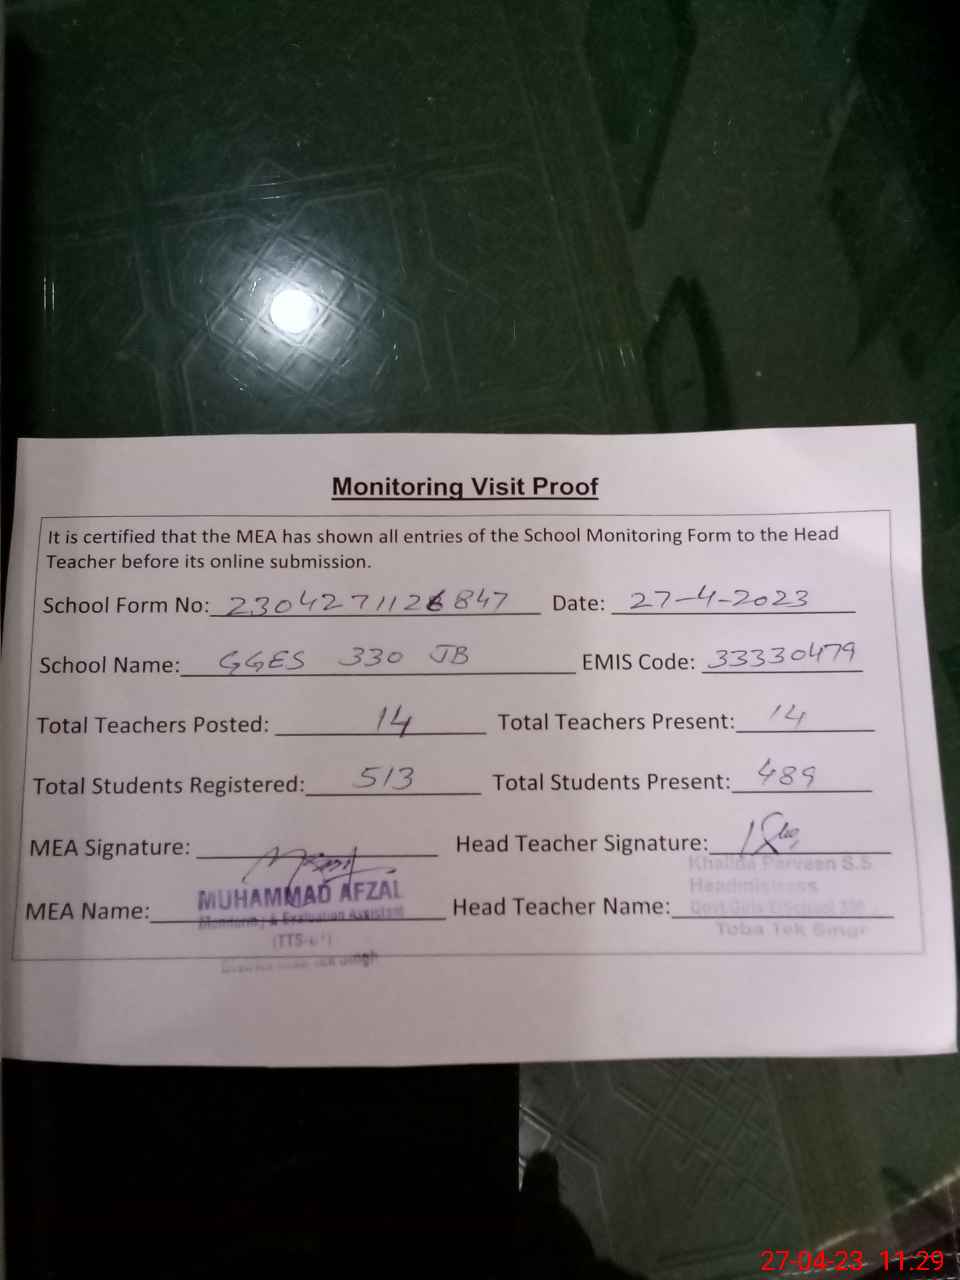 Monitoring Visit Proof
It is certified that the MEA has shown all entries of the School Monitoring Form to the Head
Teacher before its online submission.
School Form No: 2304271126847 Date: 27-4-2023
School Name: GGES 330 JB EMIS Code: 33330479
Total Teachers Posted: 14 Total Teachers Present: 14
Total Students Registered: 513 Total Students Present: 489
MEA Signature: Head Teacher Signature:
Khalida Parveen S.S.
Headmistress
MUHAMMAD AFZAL
MEA Name: Head Teacher Name:
Monitoring & Evaluation Assistant
Govt Girls
Toba Tek Singh
27-04-23 11:29